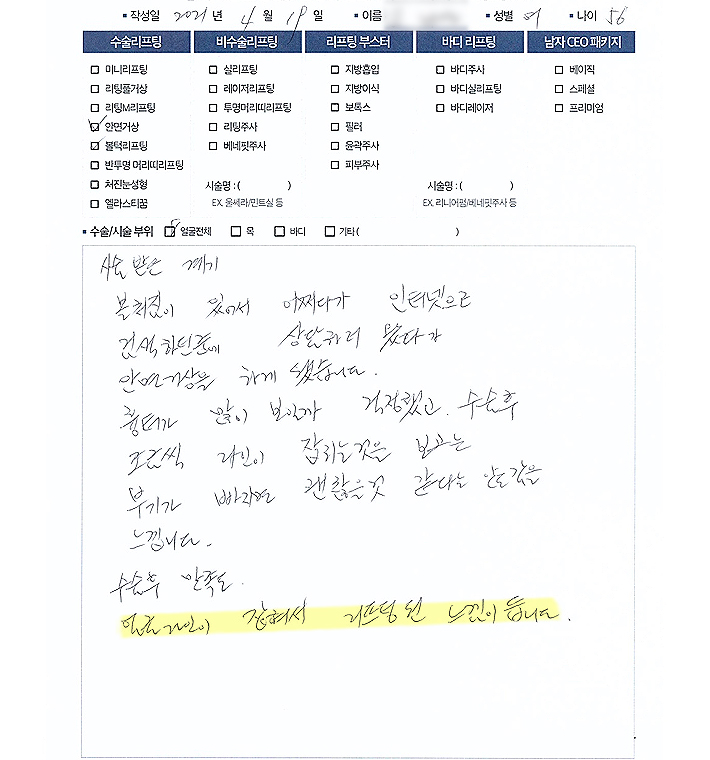 ▪ 작성일 2021 년 4 월 19 일 ▪ 이름 ▪ 성별 여 ▪ 나이 56
수술리프팅 비수술리프팅 리프팅 부스터 바디 리프팅 남자 CEO 패키지
미니리프팅 실리프팅 지방흡입 바디주사 베이직
리팅풀거상 레이저리프팅 지방이식 바디실리프팅 스페셜
리팅M리프팅 투명머리띠리프팅 보톡스 바디레이저 프리미엄
안면거상 리팅주사 필러
볼턱리프팅 베네핏주사 윤곽주사
반투명 머리띠리프팅 피부주사
처진눈성형 시술명 : ( ) 시술명 : ( )
엘라스티꿈 EX. 울쎄라/민트실 등 EX. 리니어펌/베네핏주사 등
▪ 수술/시술 부위 얼굴전체 목 바디 기타 ( )
수술 받은 계기
볼처짐이 있어서 어쩌다가 인터넷으로
검색하던중에 상담하러 왔다가
안면거상을 하게 됐습니다.
흉터가 많이 보일까 걱정했고 수술후
조금씩 라인이 잡히는것을 보고는
부기가 빠지면 괜찮을것 같다는 안도감을
느낍니다.
수술후 만족도.
얼굴라인이 잡혀서 리프팅된 느낌이 듭니다.